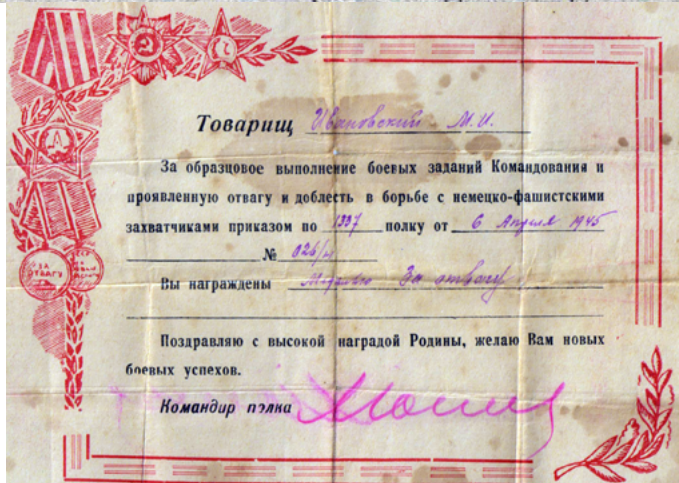 Товарищ Ивановский М.И.
За образцовое выполнение боевых заданий Командования и
проявленную отвагу и доблесть в борьбе с немецко-фашистскими
захватчиками приказом по 1337 полку от 6 Апреля 1945
№ 026/н
Вы награждены Медалью За отвагу
Поздравляю с высокой наградой Родины, желаю Вам новых
боевых успехов.
Командир полка
ЗА
ОТВАГУ